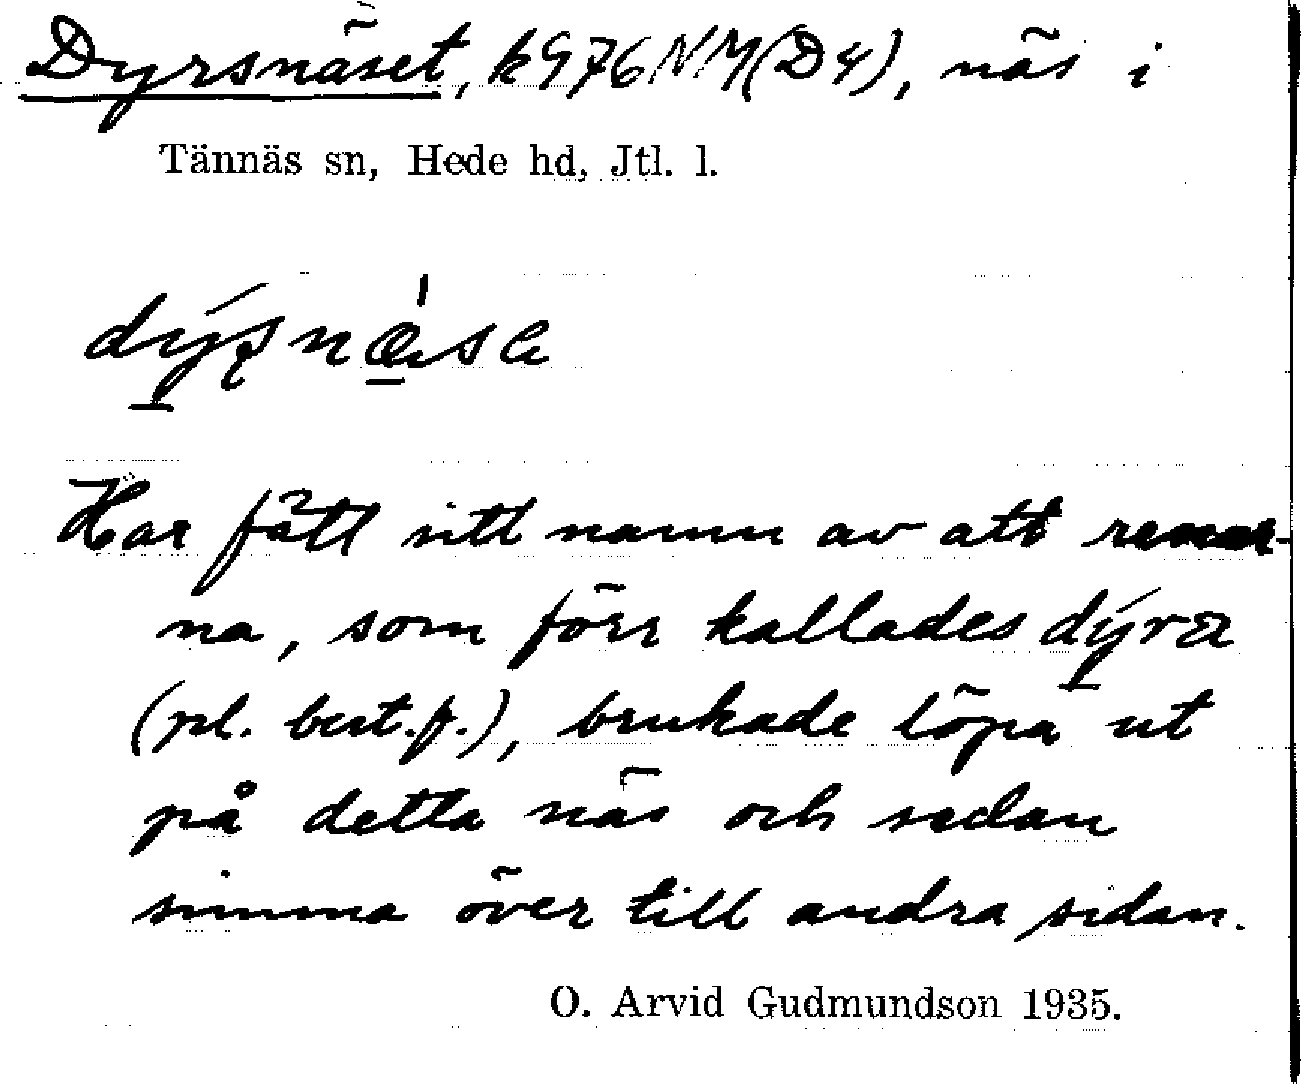 Dyrsnäset, k976NM(D4), näs i
Tännäs sn, Hede hd, Jtl. l.
Har fått sitt namn av att renar-
na, som förr kallades dýra
(pl. best.f.), brukade löpa ut
på detta näs och sedan
simma över till andra sidan.
O. Arvid Gudmundson 1935.